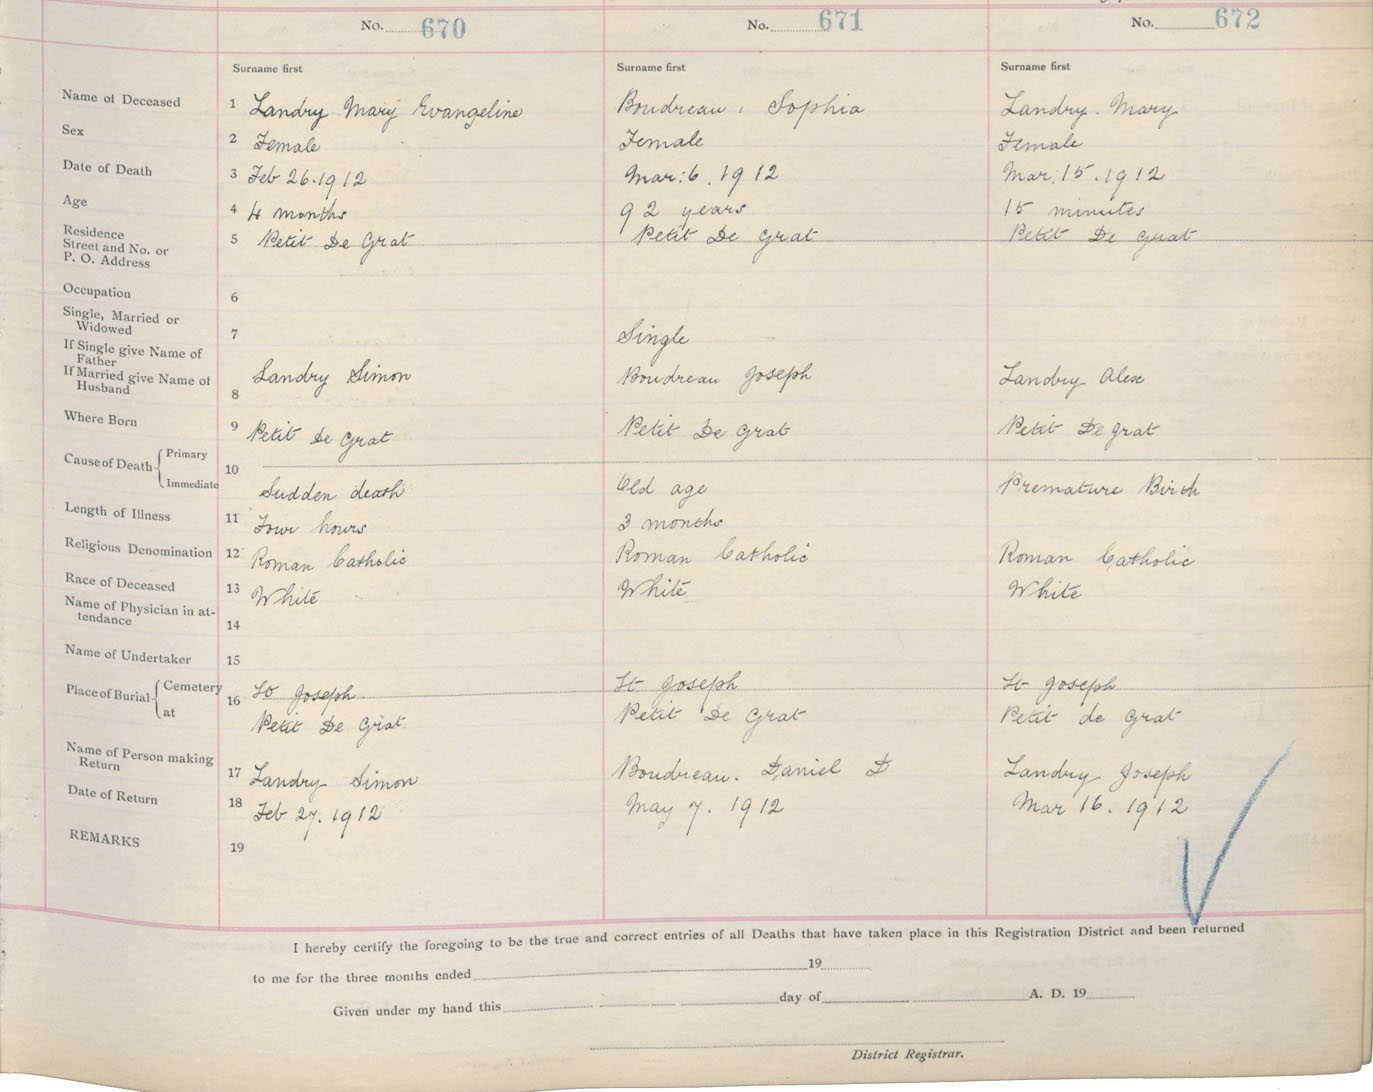 No. 670 No. 671 No. 672
Surname first Surname first Surname first
Name of Deceased 1 Landry Mary Evangeline Boudreau, Sophia Landry. Mary
Sex 2 Female Female Female
Date of Death 3 Feb 26.1912 Mar: 6. 1912 Mar. 15. 1912
Age 4 4 months 92 years 15 minutes
Residence
Street and No. or 5 Petit De Grat Petit De Grat Petit De Grat
P. O. Address
Occupation 6
Single, Married or
Widowed 7 Single
If Single give Name of
Father
If Married give Name of Landry Simon Boudreau Joseph Landry Alex
Husband 8
Where Born 9 Petit De Grat Petit De Grat Petit De Grat
Cause of Death Primary
10
Immediate Sudden death Old age Premature Birth
Length of Illness 11 Four hours 3 months
Religious Denomination 12 Roman Catholic Roman Catholic Roman Catholic
Race of Deceased 13 White White White
Name of Physician in at-
tendance 14
Name of Undertaker 15
Place of Burial Cemetery 16 St Joseph St Joseph St Joseph
at Petit De Grat Petit De Grat Petit de Grat
Name of Person making
Return 17 Landry Simon Boudreau. Daniel D Landry Joseph
Date of Return 18 Feb 27. 1912 May 7. 1912 Mar 16. 1912
REMARKS 19
I hereby certify the foregoing to be the true and correct entries of all Deaths that have taken place in this Registration District and been returned
to me for the three months ended 19
Given under my hand this day of A. D. 19
District Registrar.